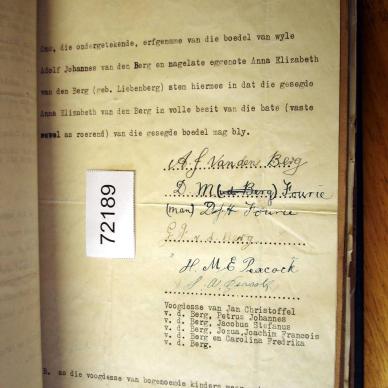 Ons, die ondergetekende, erfgename van die boedel van wyle
Adolf Johannes van den Berg en nagelate eggenote Anna Elizabeth
van den Berg (geb. Liebenberg) stem hiermee in dat die gesegde
Anna Elizabeth van den Berg in volle besit van die bate (vaste
sowel as roerend) van die gesegde boedel mag bly.
A. J. Van den Berg
D. M (v.d. Berg) Fourie
(man) Fourie
v. d. Berg
72189
H. M. E Peacock
Voogdesse van Jan Christoffel
v. d. Berg, Petrus Johannes
v. d. Berg, Jacobus Stefanus
v. d. Berg, Josua, Joachim Francois
v. d. Berg en Carolina Fredrika
v. d. Berg.
as die voogdesse van bogenoemde kinders